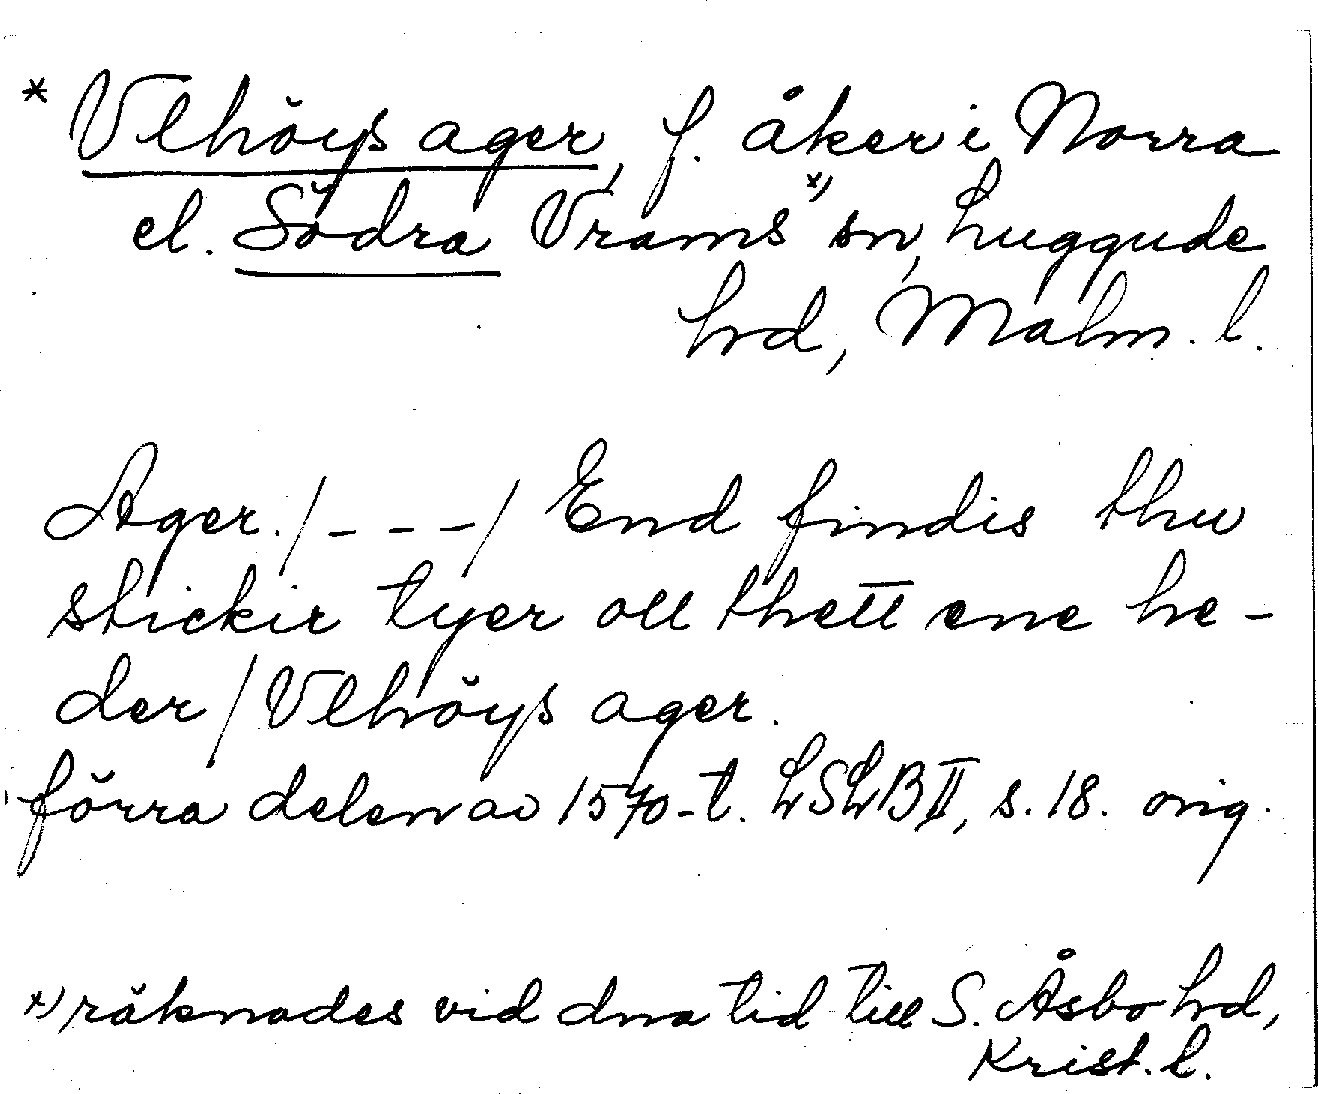 * Vlhöys ager, f. åker i Norra
el. Södra Vrams x) sn, Luggude
hrd, Malm. l.
Ager. /---/ End findis thu
stickir tyer oll thett ene he-
der / Vlhöys ager.
förra delen av 1570-t. LSLB II, s. 18. orig.
x) räknades vid dna tid till S. Åsbo hrd,
Krist. l.